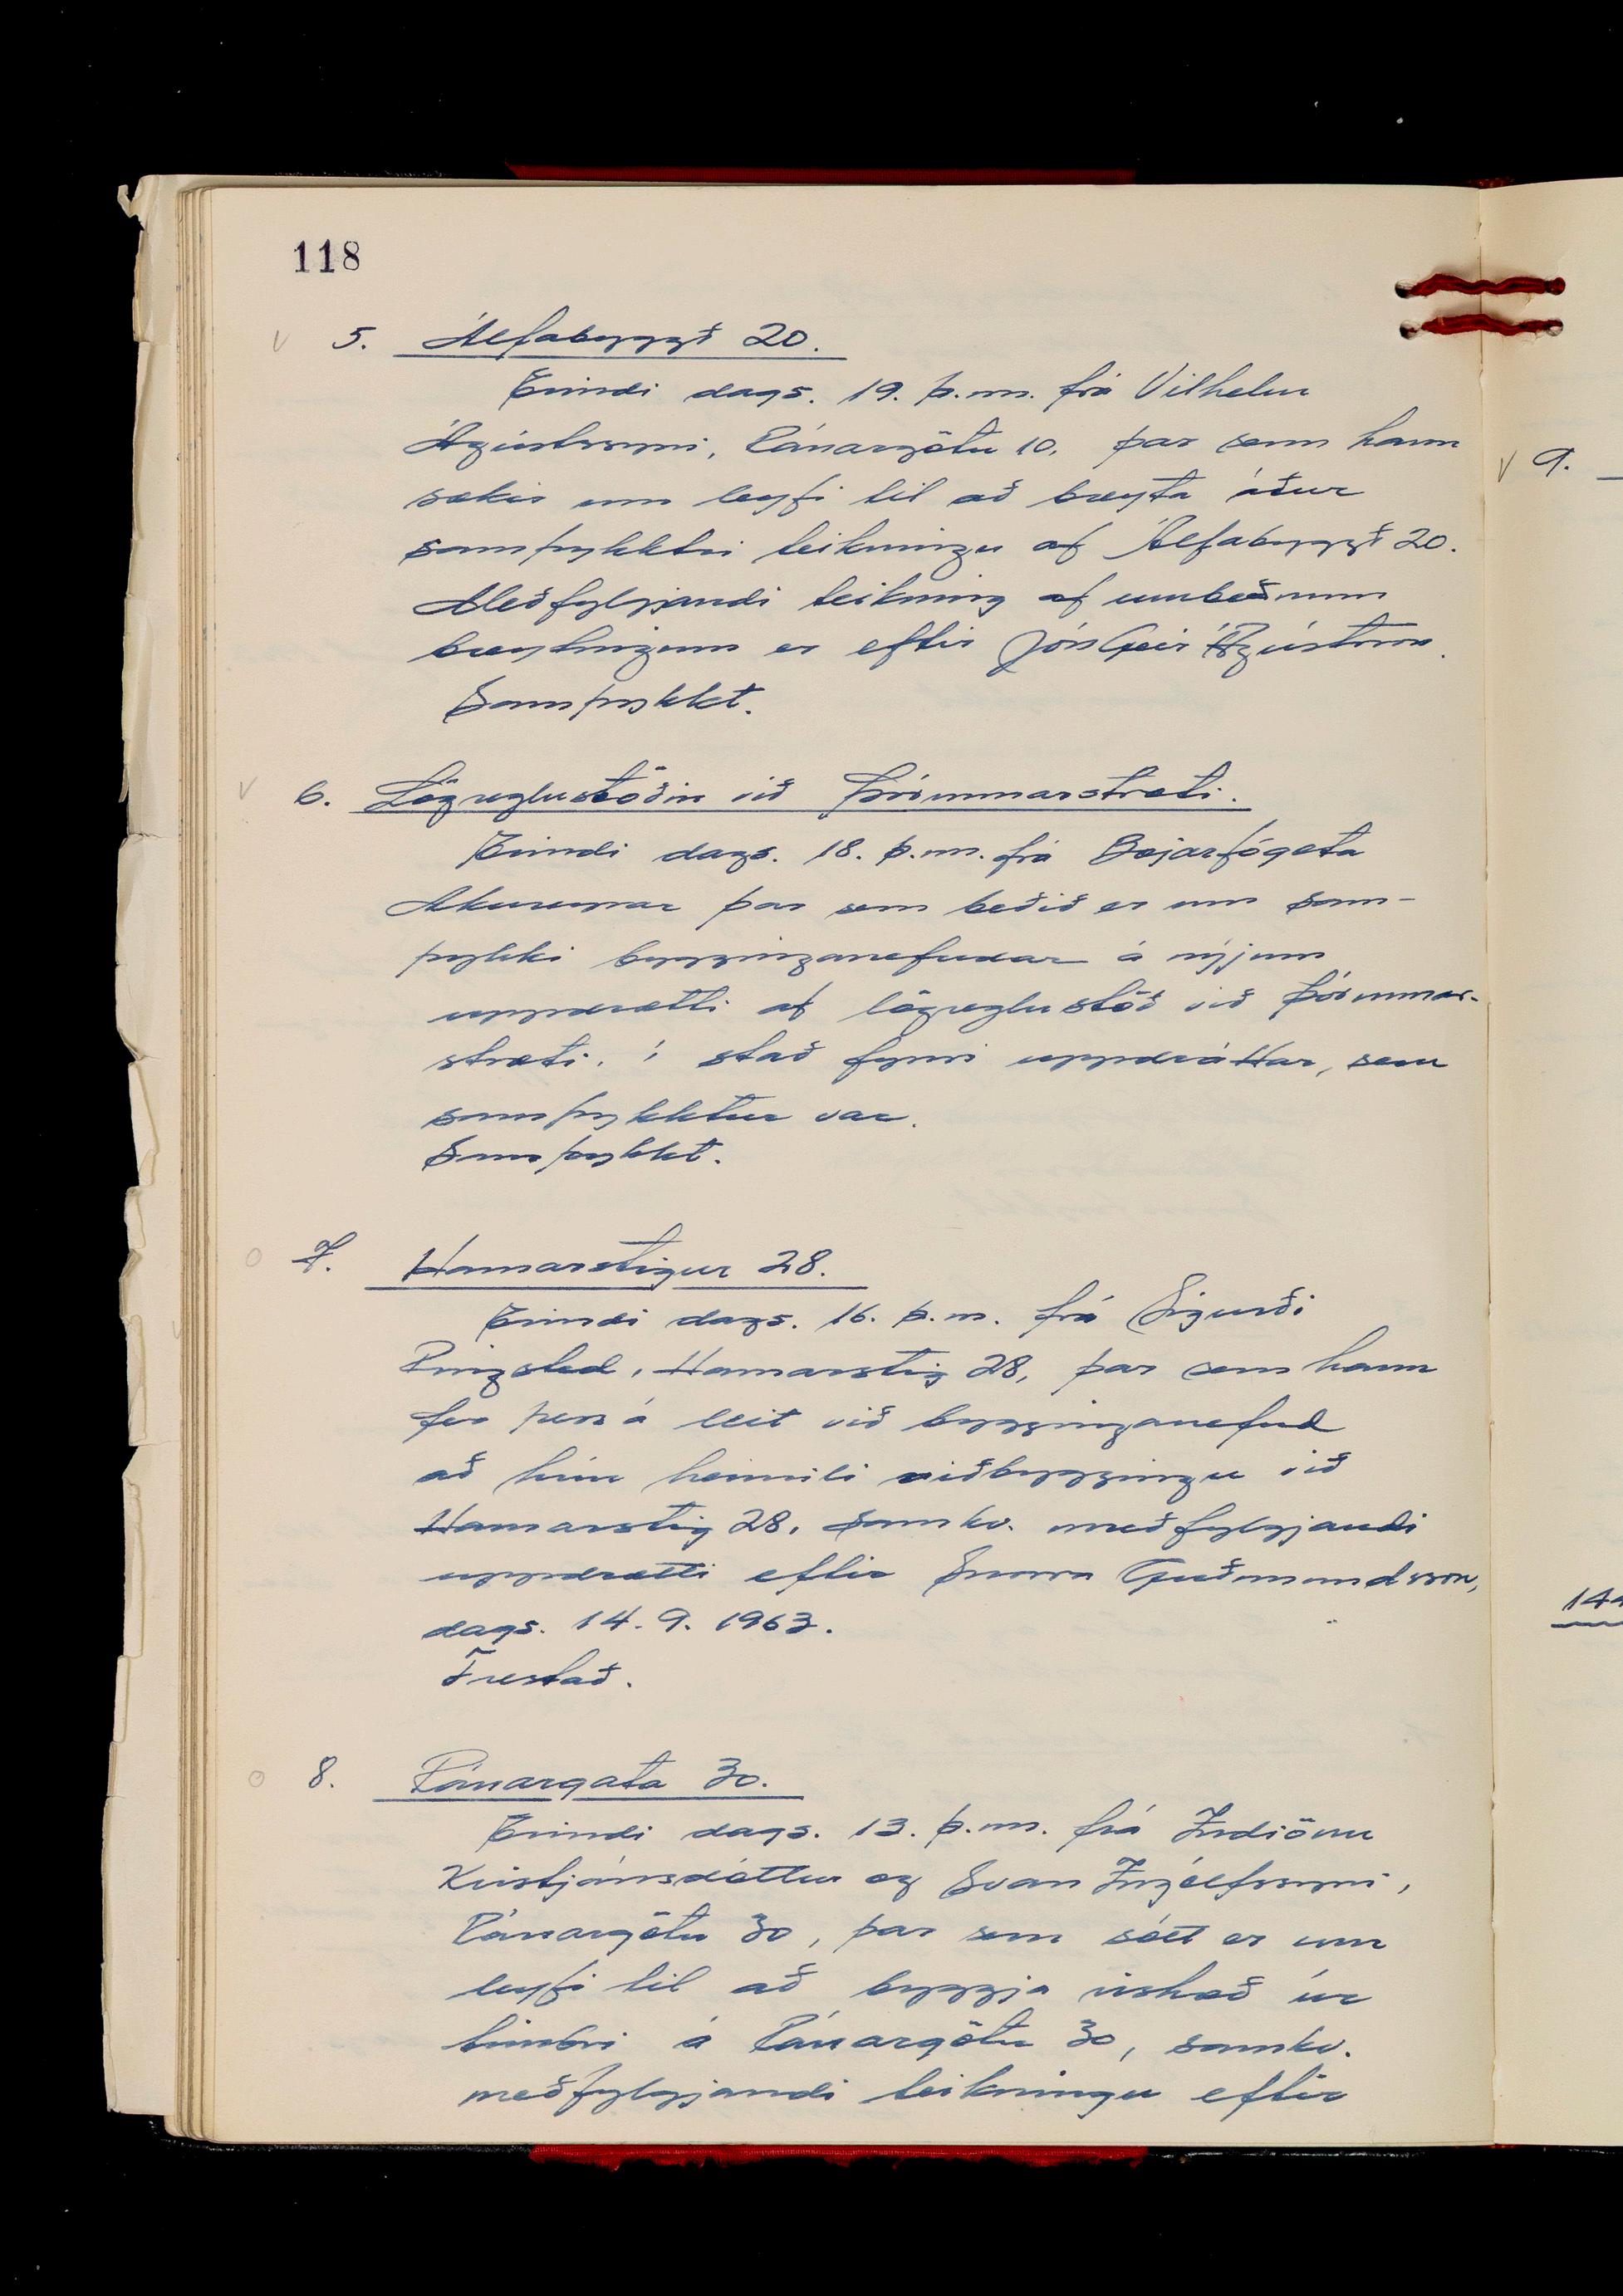 118
V 5. Álfabyggð 20.
Erindi dags. 19. þ.m. frá Vilhelm
Ágústssyni, Ránargötu 10, þar sem hann
sækir um leyfi til að breyta áður
samþykktri teikningu af Álfabyggð 20.
Meðfylgjandi teikning af umbeðnum
breytingum er eftir Jón Geir Ágústsson.
Samþykkt.
V 6. Lögreglustöðin við Þórunnarstræti.
Erindi dags. 18. þ.m. frá Bæjarfógeta
Akureyrar þar sem beðið er um sam-
þykki bygginganefndar á nýjum
uppdrætti af lögreglustöð við Þórunnar-
stræti, í stað fyrri uppdráttar, sem
samþykktur var.
Samþykkt.
O 7. Hamarstígur 28.
Erindi dags. 16. þ.m. frá Sigurði
Ringsted, Hamarstíg 28, þar sem hann
fer þess á leit við bygginganefnd
að hún heimili viðbyggingu við
Hamarstíg 28, samkv. meðfylgjandi
uppdrætti eftir Snorra Guðmundsson,
dags. 14.9. 1963.
Frestað.
O 8. Ránargata 30.
Erindi dags. 13. þ.m. frá Indíönu
Kristjánsdóttur og Svan Ingólfssyni,
Ránargötu 30, þar sem sótt er um
leyfi til að byggja viskað úr
timbri á Ránargötu 30, samkv.
meðfylgjandi teikningu eftir
V 9.
144